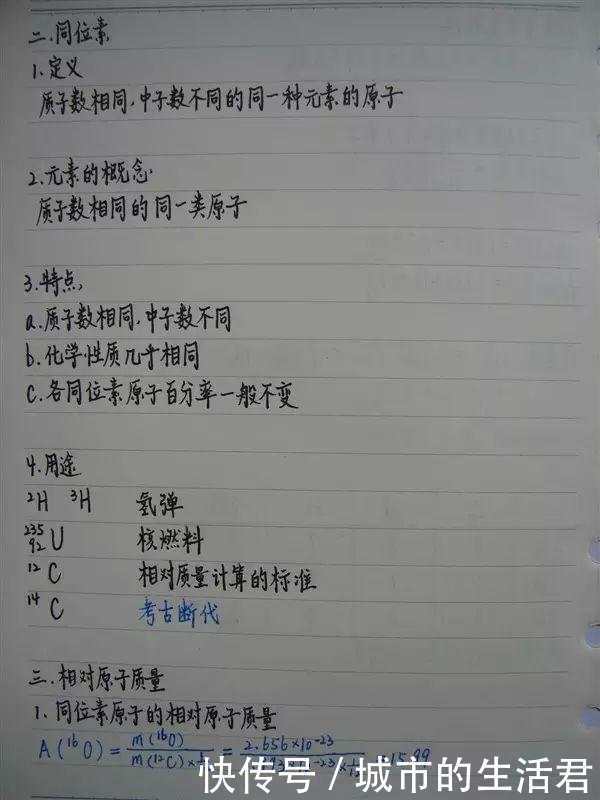 二.同位素
1.定义
质子数相同,中子数不同的同一种元素的原子
2.元素的概念
质子数相同的同一类原子
3.特点
a.质子数相同,中子数不同
b.化学性质几乎相同
c.各同位素原子百分率一般不变
4.用途
²H ³H 氢弹
²³⁵₉₂U 核燃料
¹²C 相对质量计算的标准
¹⁴C 考古断代
三.相对原子质量
1.同位素原子的相对原子质量
A(¹⁶O) = m(¹⁶O) / m(¹²C)× = 2.656×10⁻²³
快传号/城市的生活君